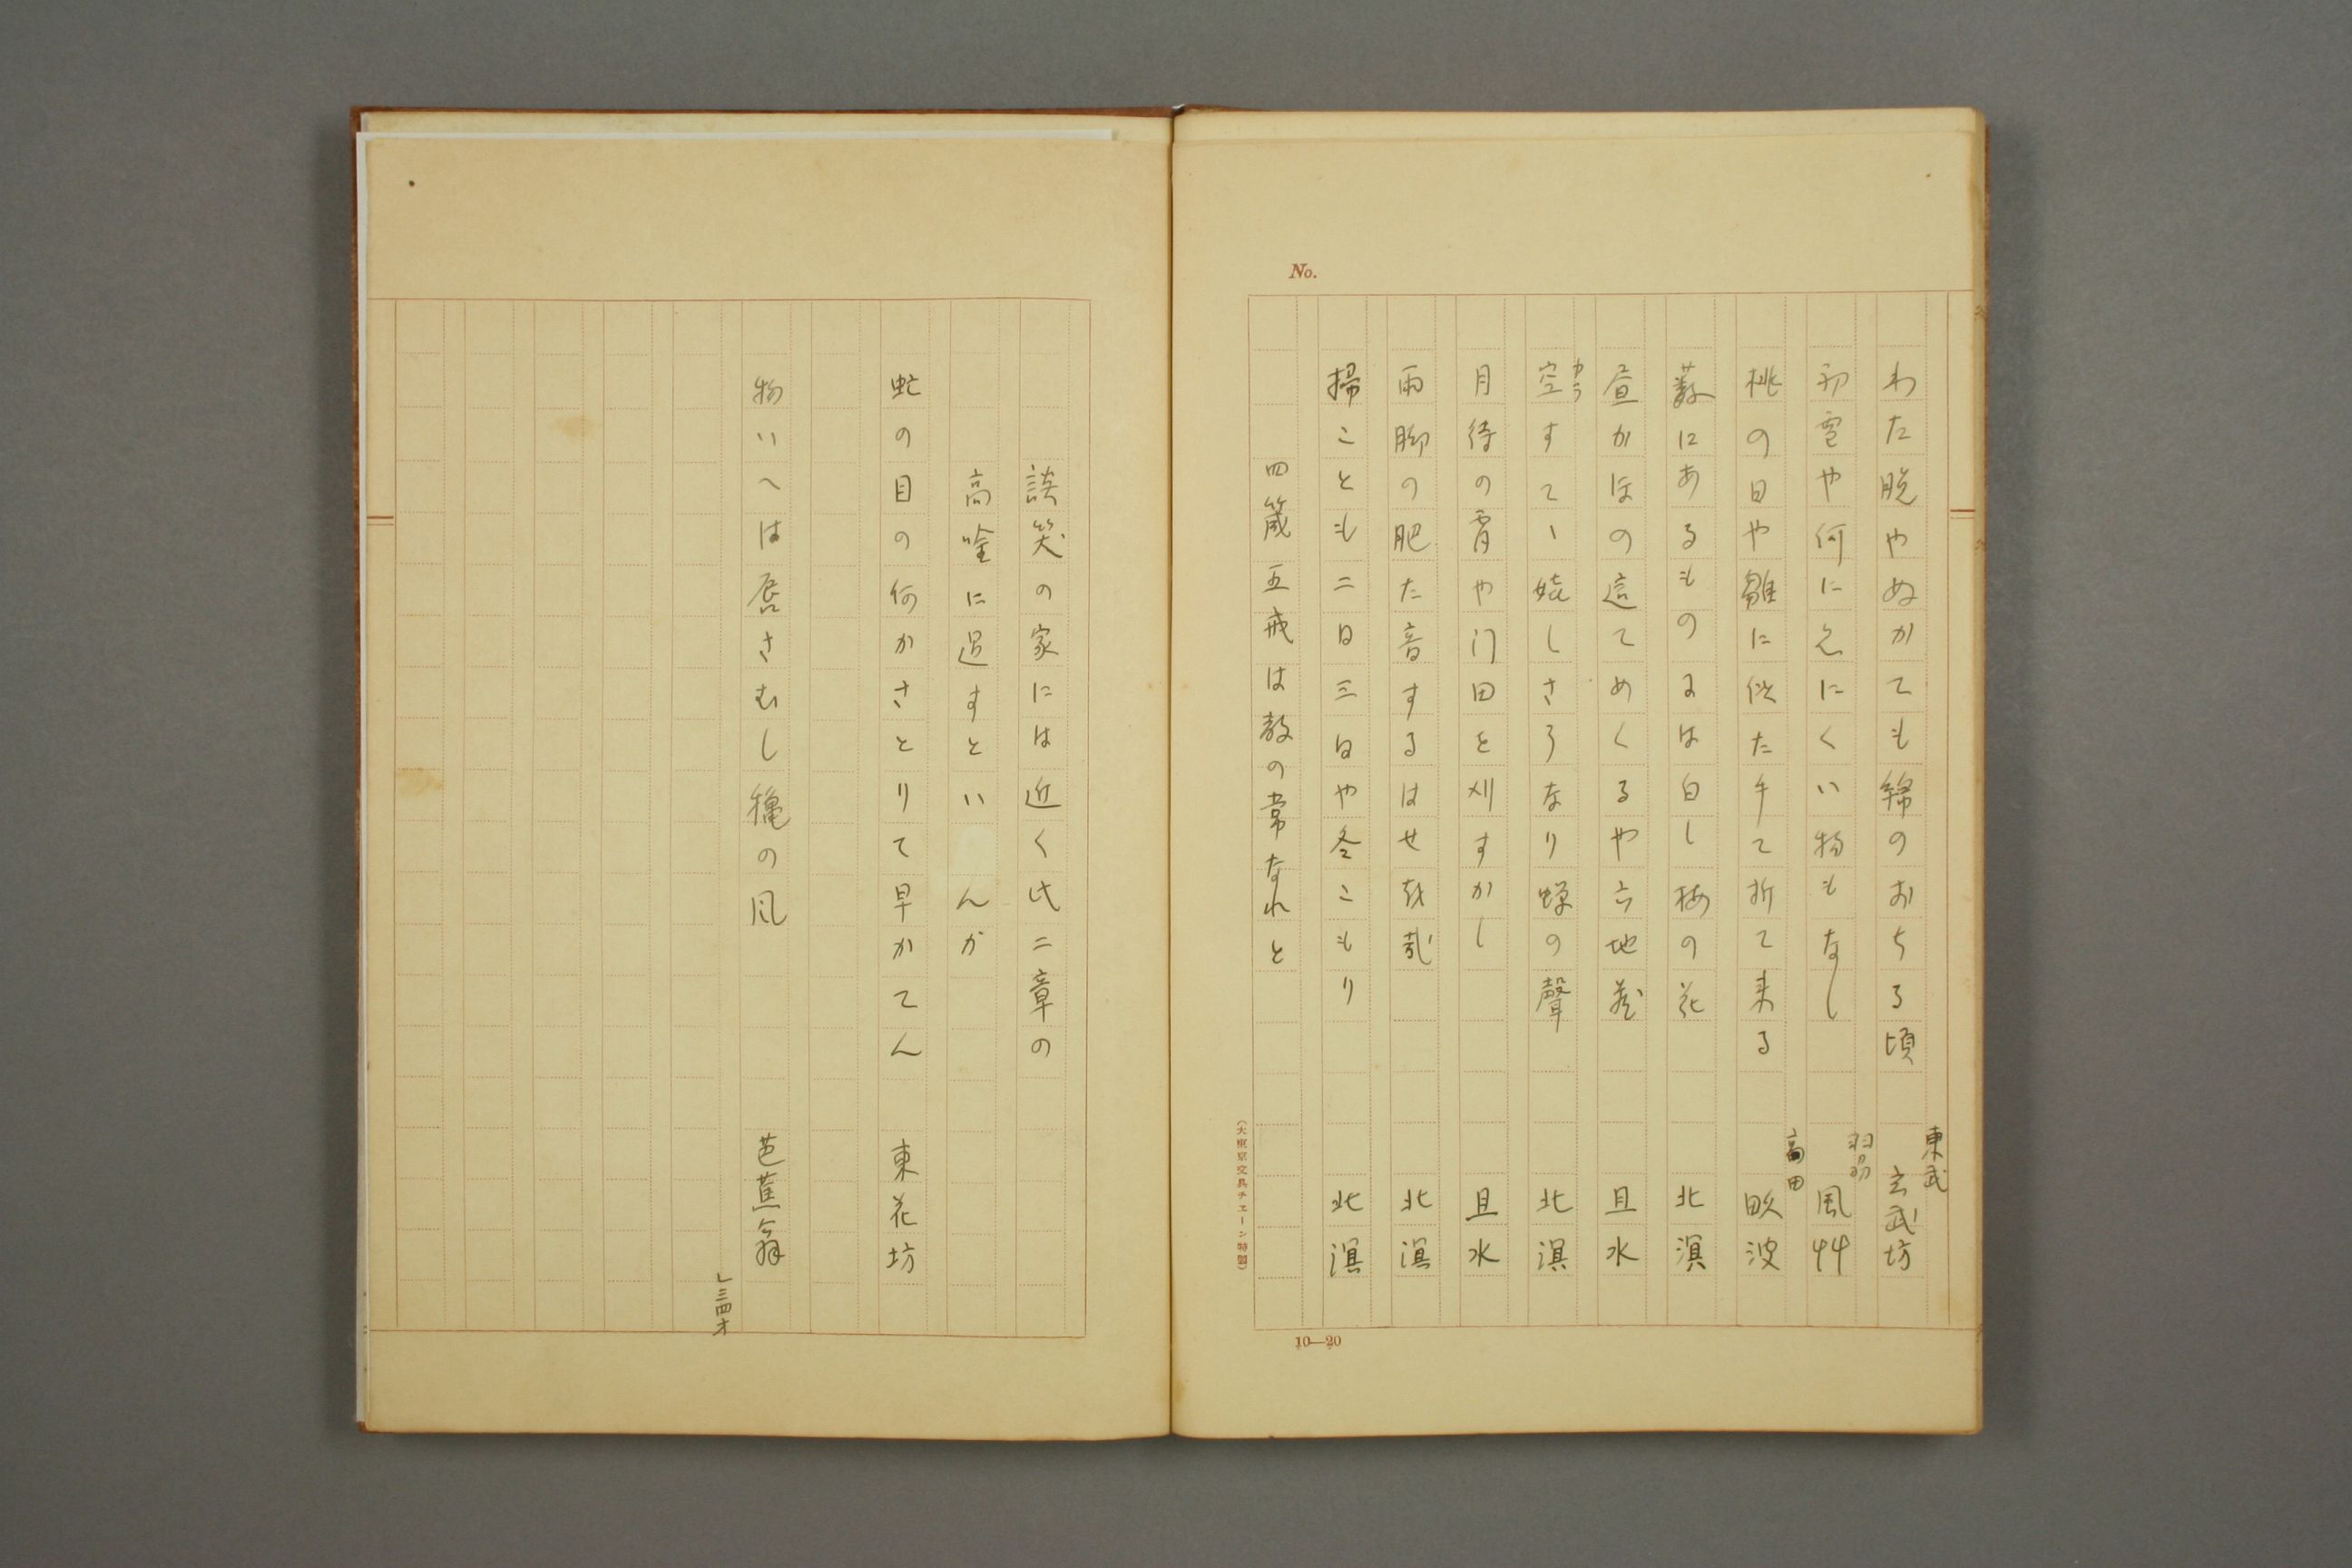 No.
わた脱やぬかても綿のおちる頃 東武 玄武坊
初雪や何に忘にくい物もなし 風艸
桃の日や雛に似た手て折て来る 高田 畋波
藪にあるものゝは白し梅の花 北溟
昼かほの這てめくるや六地蔵 且水
空すてゝ嬈しさうなり蝉の聲 北溟
カラ
月待の宵や门田を刈すかし 且水
雨脚の肥た音するはせを哉 北溟
掃ことも二日三日や冬こもり 北溟
四箴五戒は教の常なれと
(大東京文具チエーン特製)
10—20
談笑の家には近く此二章の
高唫に過すといんか
虻の目の何かさとりて早かてん 東花坊
物いへは唇さむし龝の風 芭蕉翁
レ三四オ